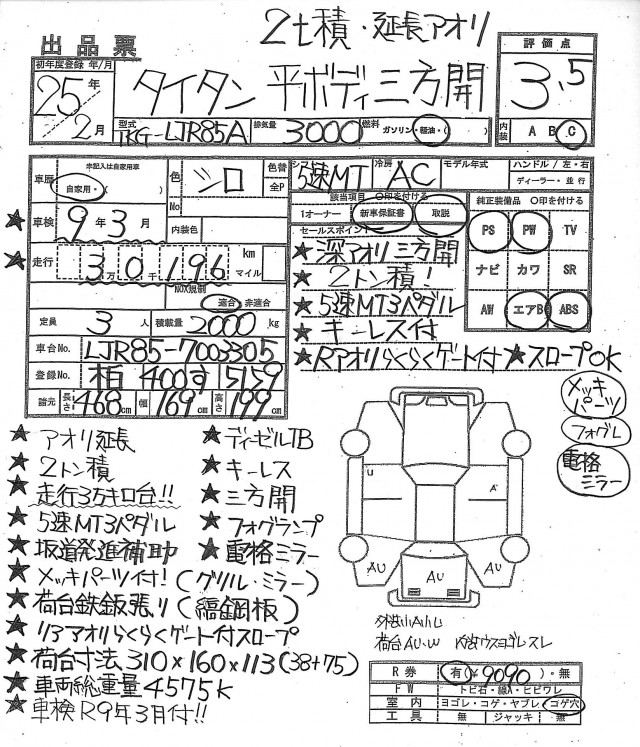 2t積・延長アオリ
出品票
初年度登録 年/月
25年
2月
タイタン 平ボディ三方開
評価点
3.5
内装 A B C
型式 TKG-LJR85A 排気量 3000 燃料 ガソリン・軽油・( )
未記入は自家用車
車歴 自家用・( )
色 シロ 色替 全P
No
内装色
5速MT 冷房 AC モデル年式
ハンドル/左・右
ディーラー・並行
該当項目 ○印を付ける
1オーナー 新車保証書 取説
純正装備品 ○印を付ける
PS PW TV
ナビ カワ SR
AW エアB ABS
★車検 9年3月
★走行 3万0千196 km マイル
NOX規制 適合・非適合
定員 3人 積載量 2000kg
車台No. LJR85-7003305
登録No. 柏 400す 5159
諸元 長さ 468cm 幅 169cm 高さ 199cm
セールスポイント
★深アオリ三方開
★2トン積!
★5速MT3ペダル
★キーレス付
★Rアオリらくらくゲート付★スロープOK
メッキパーツ
フォグL
電格ミラー
★アオリ延長
★2トン積
★走行3万キロ台!!
★5速MT3ペダル
★坂道発進補助
★メッキパーツ付!(グリル・ミラー)
★荷台鉄鈑張り(縞鋼板)
★リアアオリらくらくゲート付スロープ
★荷台寸法310×160×113(38+75)
★車両総重量4575k
★車検R9年3月付!!
★ディーゼルTB
★キーレス
★三方開
★フォグランプ
★電格ミラー
U
A
AU
AU
AU
外装小A小U
荷台AU.W 内装ウスヨゴレスレ
R券 有(¥9090)・無
FW トビ石・線A・ヒビワレ
室内 ヨゴレ・コゲ・ヤブレ・コゲ穴
工具 無 ジャッキ 無